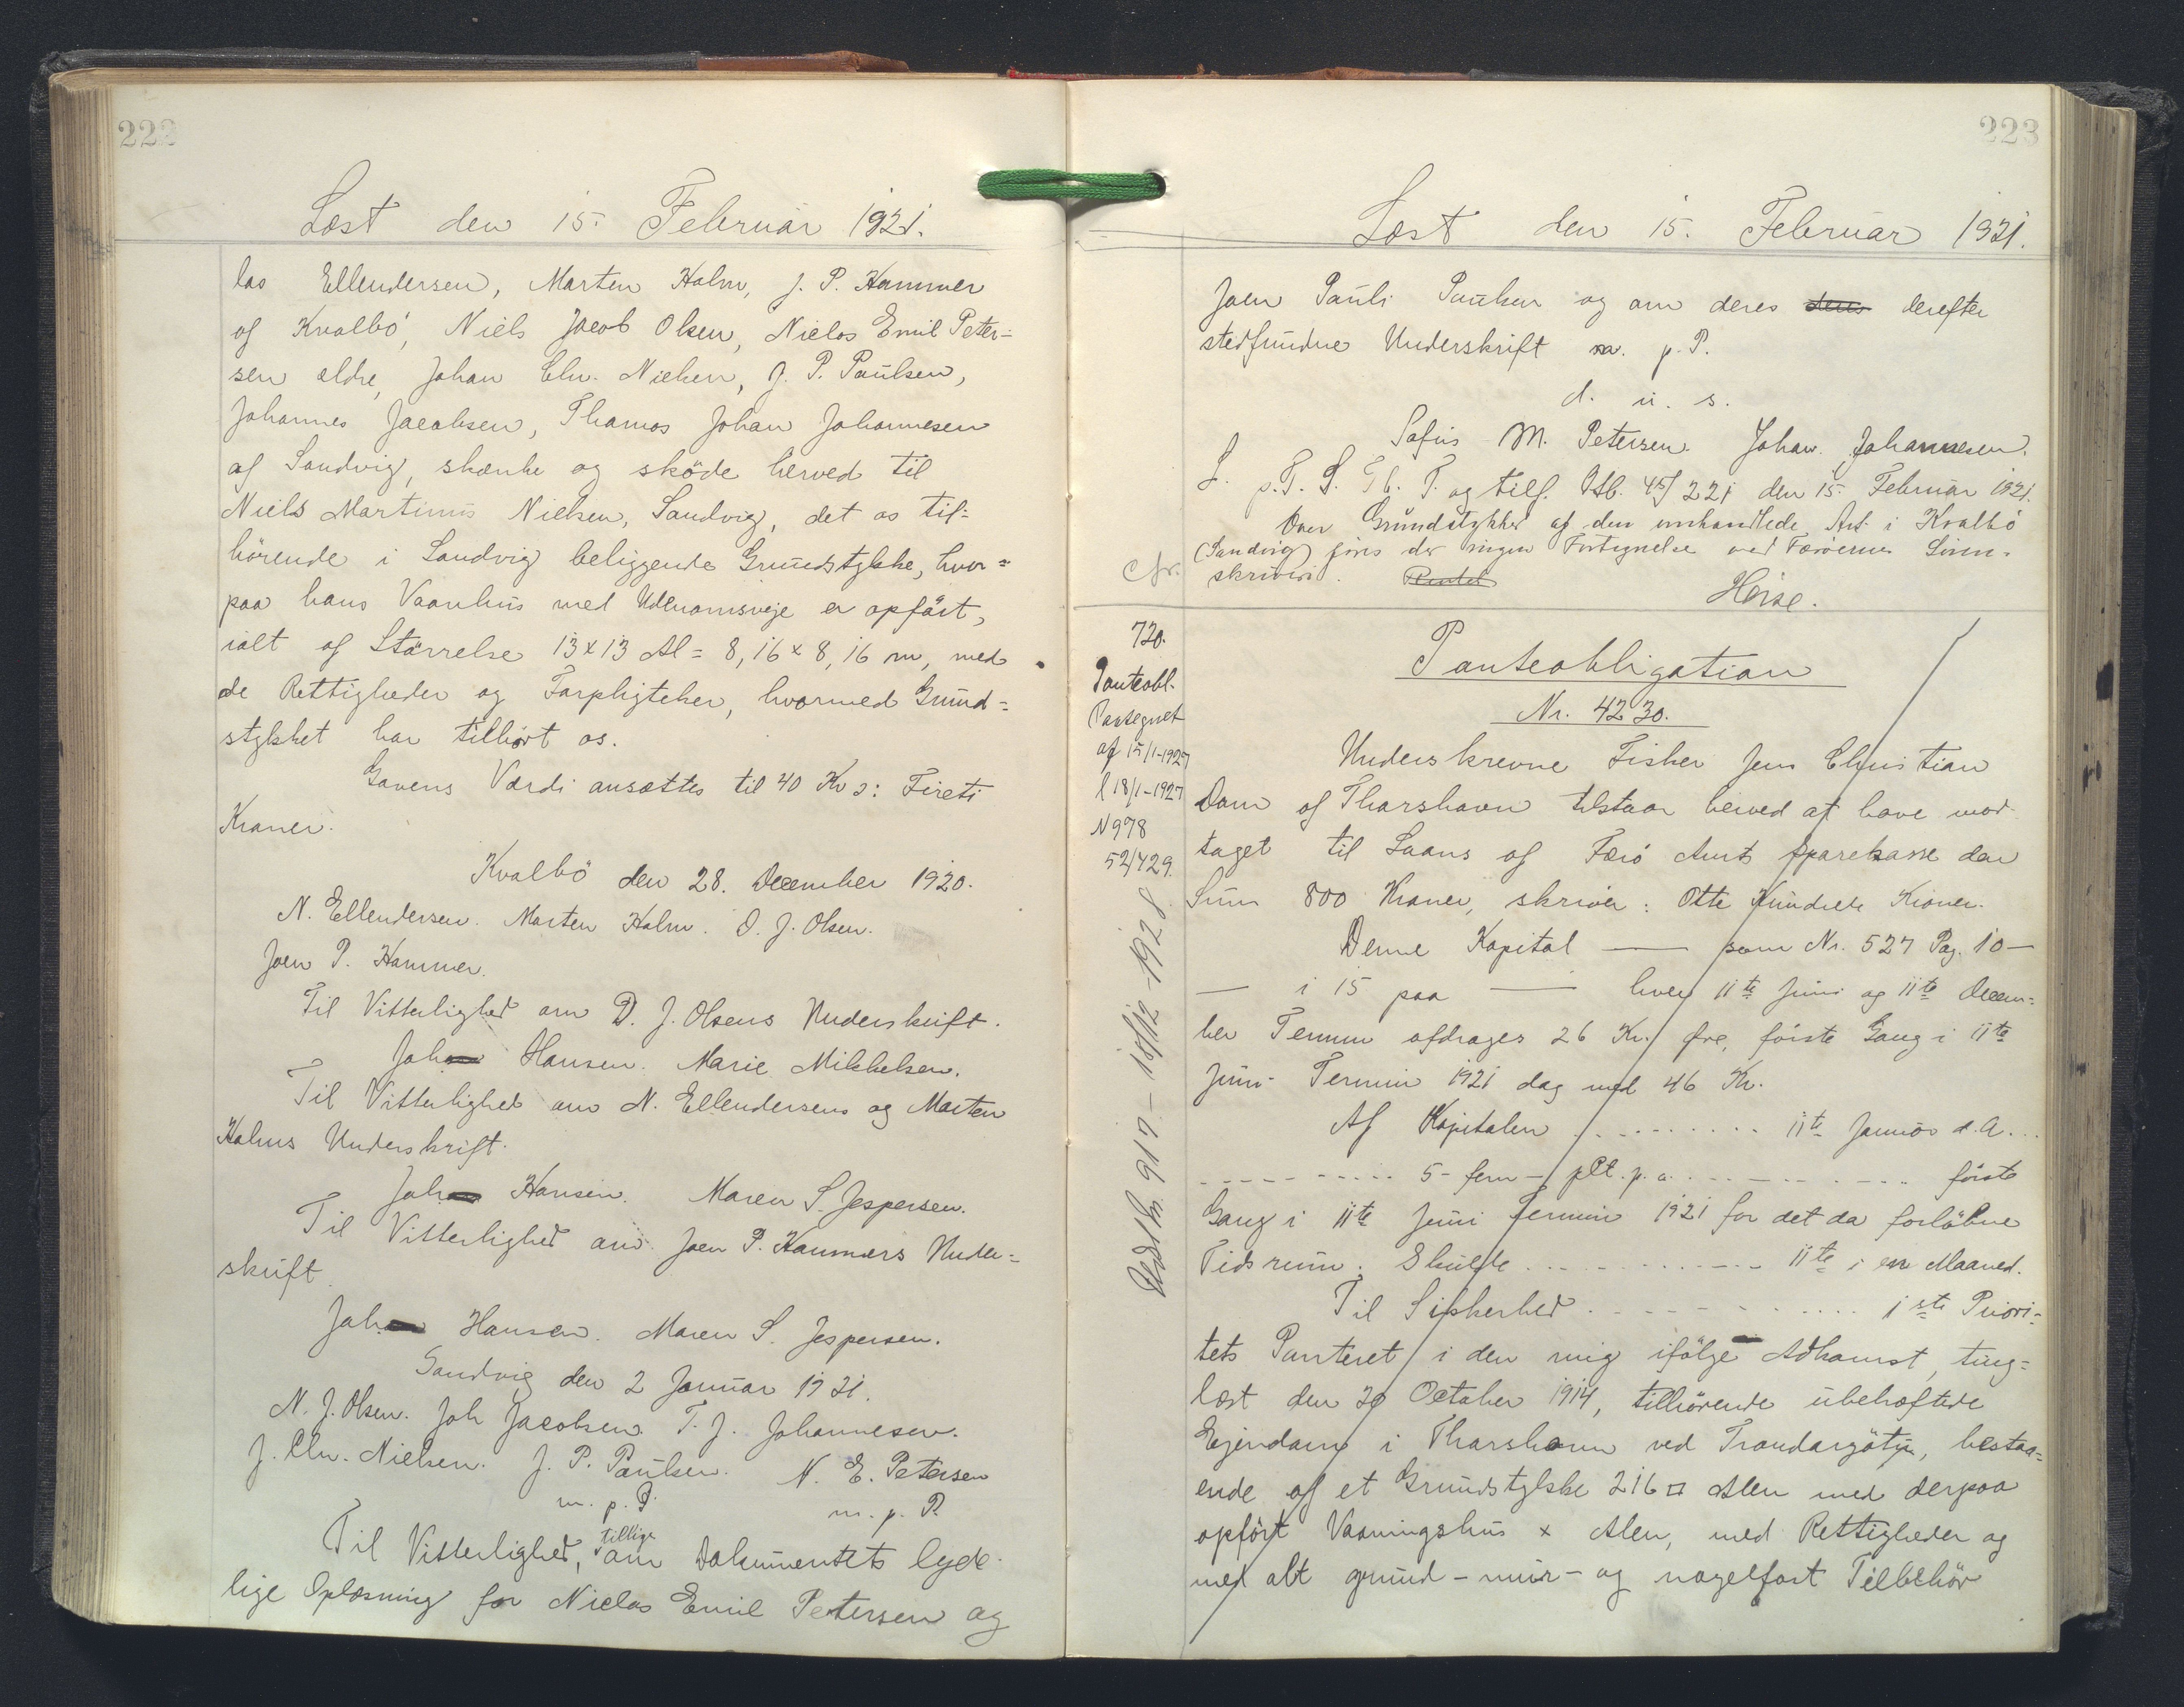 222
Læst den 15. Februar 1921.
las Ellendersen, Morten Holm, J. P. Hammer
af Kvalbö, Niels Jacob Olsen, Nielas Emil Peter-
sen ældre, Johan Chr. Nielsen, J. P. Paulsen,
Johannes Jacobsen, Thomas Johan Johannesen
af Sandvig, skænke og sköde herved til
Niels Martinus Nielsen, Sandvig, det os til-
hörende i Sandvig beliggende Grundstykke, hvor-
paa hans Vaanhus med Udenomsveje er opfört,
ialt af Störrelse 13 x 13 Al = 8,16 x 8,16 m, med
de Rettigheder og Forpligtelser, hvormed Grund-
stykket har tilhört os.
Gavens Værdi ansættes til 40 Kr ɔ: Fireti
Kroner.
Kvalbö den 28. December 1920.
N. Ellendersen. Morten Holm. D. J. Olsen.
Joen P. Hammer.
Til Vitterlighed om D. J. Olsens Underskrift.
Joh Hansen. Marie Mikkelsen.
Til Vitterlighed om N. Ellendersens og Morten
Holms Underskrift.
Joh Hansen. Maren S. Jespersen.
Til Vitterlighed om Joen P. Hammers Under-
skrift.
Joh Hansen. Maren S. Jespersen.
Sandvig den 2 Januar 1921.
N. J. Olsen. Joh Jacobsen. T. J. Johannesen.
J. Chr. Nielsen. J. P. Paulsen. N. E. Petersen
m. p. P. m. p. P.
Til Vitterlighed, tillige om Dokumentets lyde-
lige Oplæsning for Nielas Emil Petersen og
223
Læst den 15. Februar 1921.
Joen Pauli Paulsen og om deres deres derefter
stedfundne Underskrift m. p. P.
d. u. s.
Sofus M. Petersen. Johan. Johannesen.
J. p. T. S. Tb. T. og tilf. Utb. 45/221 den 15. Februar 1921.
Over Grundstykker af den omhandlede Art i Kvalbö
(Sandvig) föres der ingen Fortegnelse ved Færöernes Soren-
skriveri.
Heise.
720.
Panteobl.
Paategnet
af 15/1-1927
l 18/1-1927
N 978
52/429.
Udsl. 917 - 18/12-1928
Panteobligation
Nr. 4230.
Underskrevne Fisker Jens Christian
Dam af Thorshavn tilstaar herved at have mod-
taget til Laans af Færö Amts Sparekasse den
Sum 800 Kroner, skriver: Otte Hundrede Kroner.
Denne Kapital — som Nr. 527 Pag. 10 —
— i 15 paa — hver 11te Juni og 11te Decem-
ber Termin afdrages 26 Kr. Øre, förste Gang i 11te
Juni Termin 1921 dog med 46 Kr.
Af Kapitalen ......... 11te Januar d. A...
......... 5 - fem - pCt. p. a. ......... förste
Gang i 11te Juni Termin 1921 for det da forlöbne
Tidsrum. Skulde ......... 11te i en Maaned.
Til Sikkerhed ......... 1ste Priori-
tets Panteret i den mig ifölge Adkomst, ting-
læst den 20 October 1914, tilhörende ubehæftede
Ejendom i Thorshavn ved Trondargötu, bestaa-
ende af et Grundstykke 216 □ Alen med derpaa
opfört Vaaningshus x Alen, med Rettigheder og
med alt grund- mur- og nagelfast Tilbehör